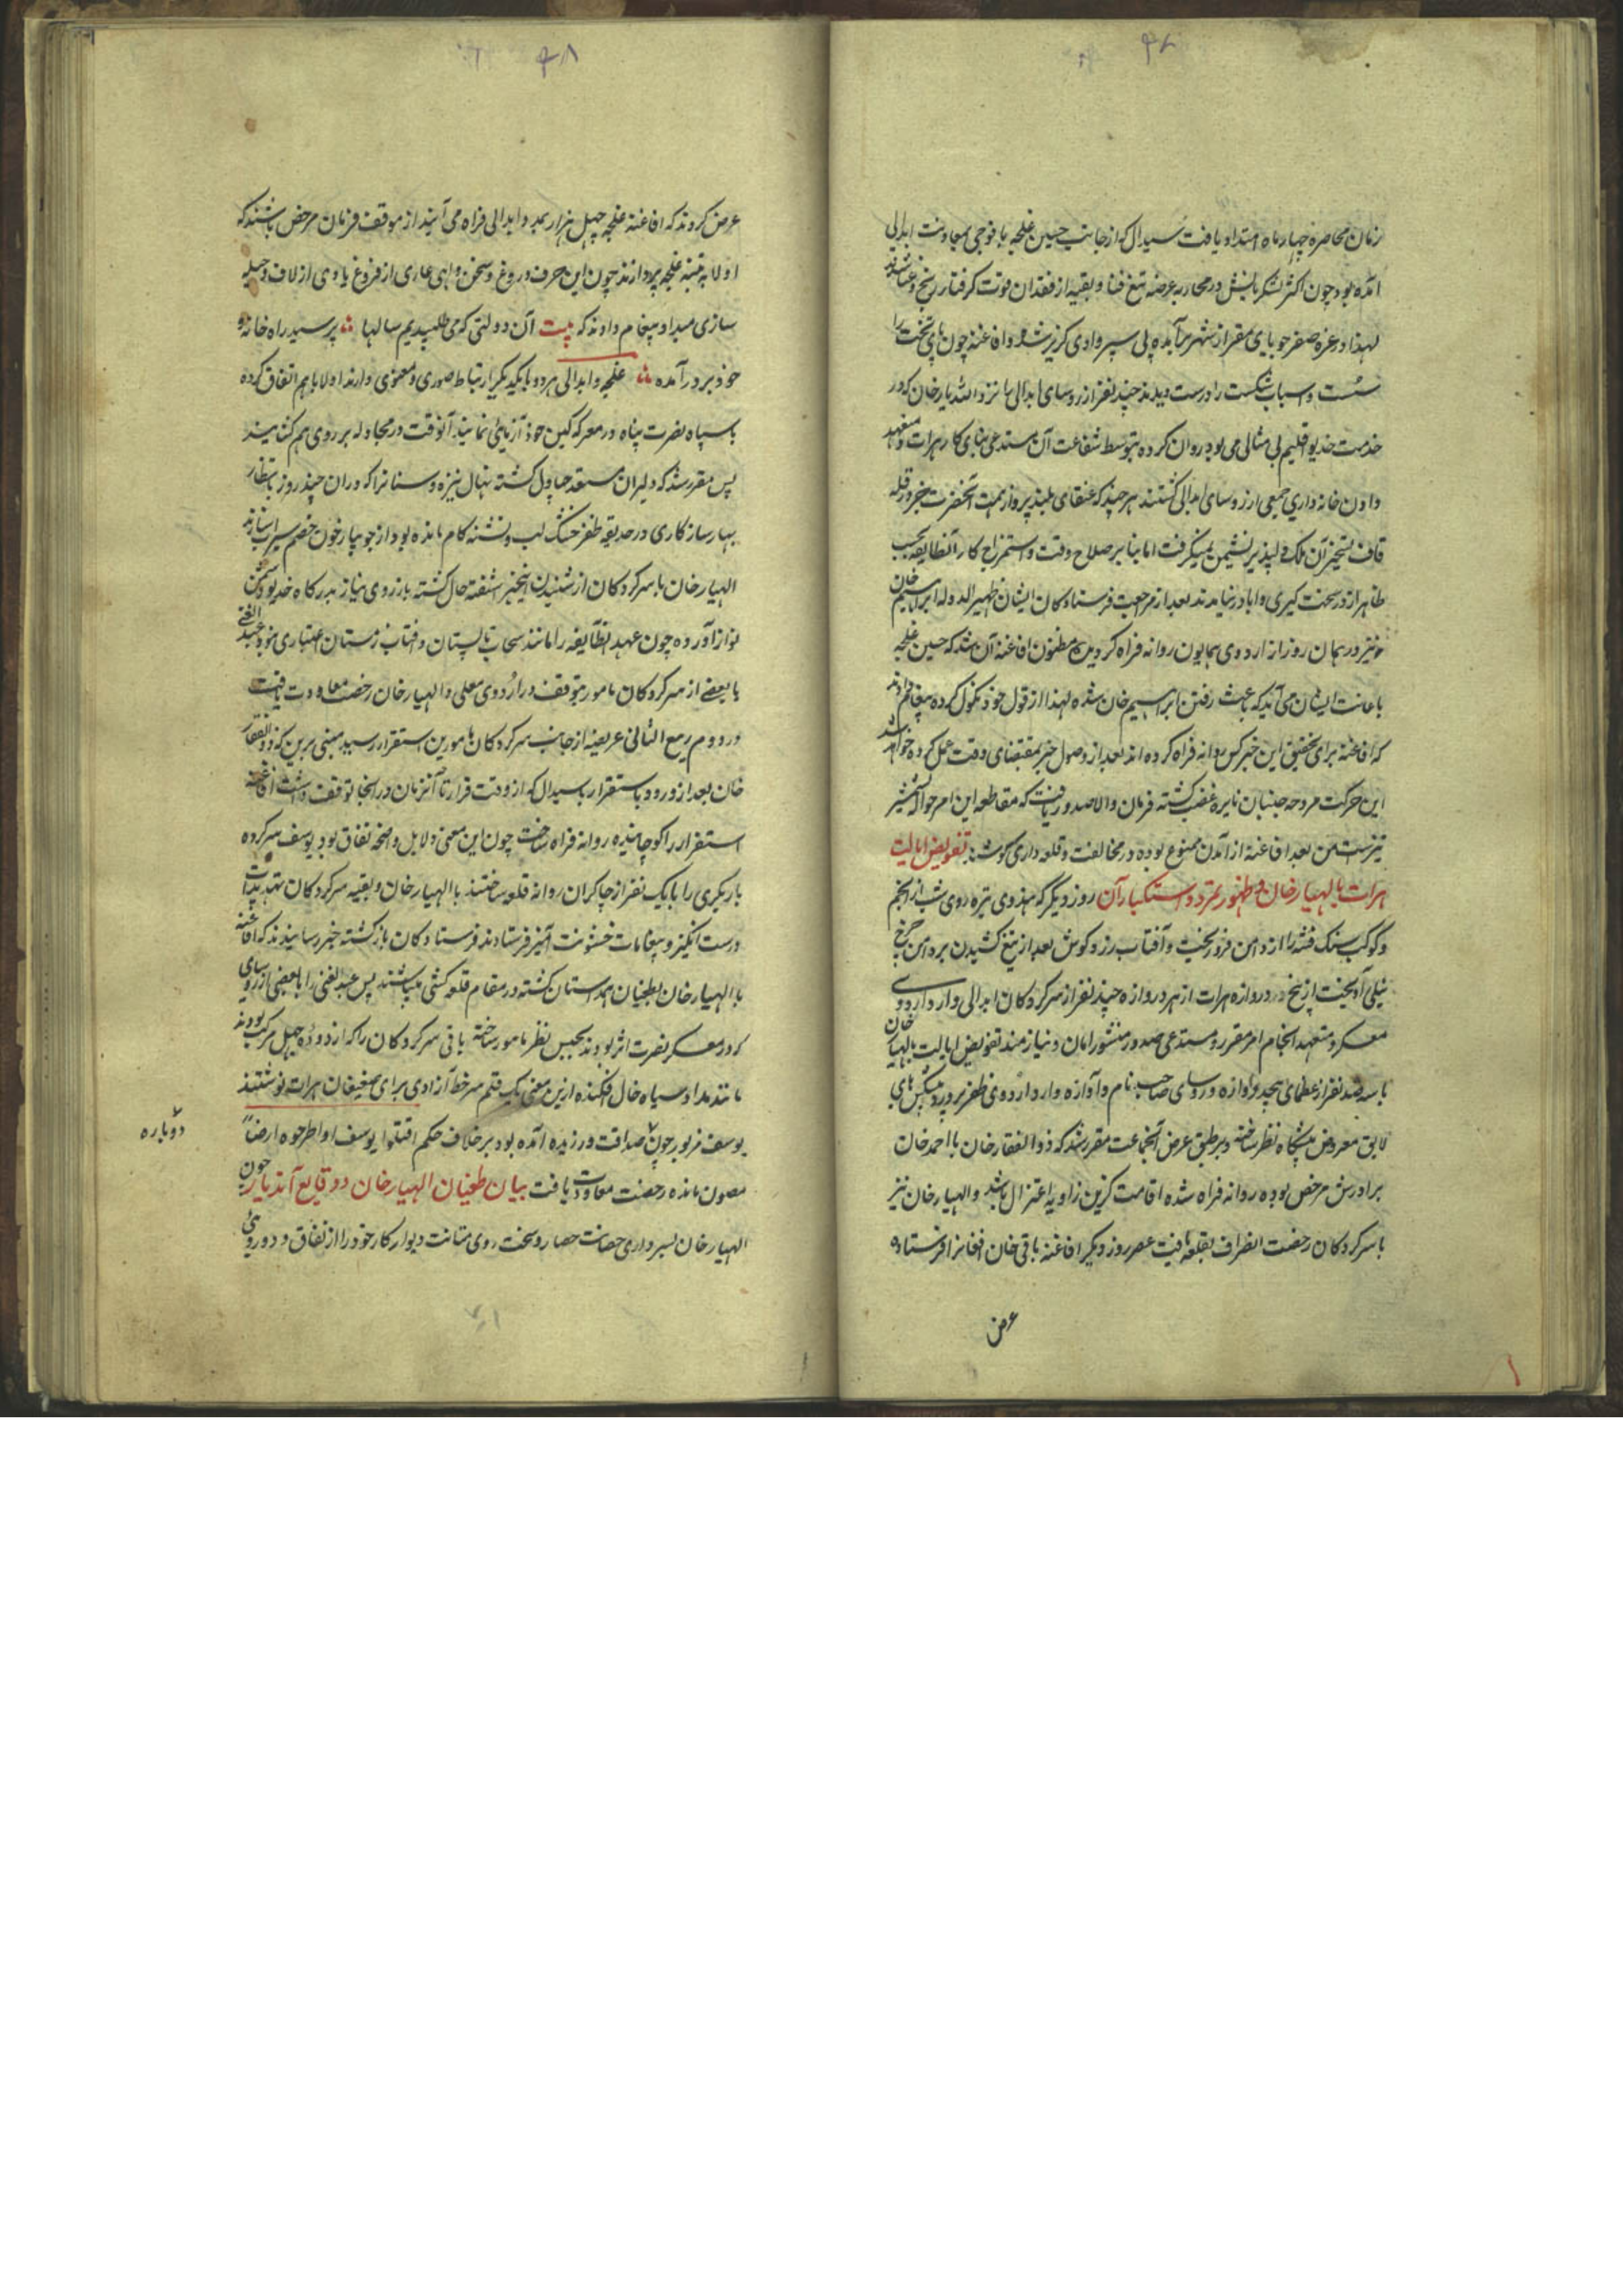 زمان محاصره چهار ماه امتداد یافت سیدال که از جانب حسین غلجه با فوجی بمعاونت ابدالی
آمده بود چون اکثر لشکریانش در محاربه عرضه تیغ فنا و بقیه از فقدان قوت گرفتار رنج و عنا شدند
لهذا در غره صفر جویای مقر از شهر برآمده پی سپر وادی گریز شد و افاغنه چون پای تخت را
سست و اسباب شکست را درست دیدند چند نفر از روسای ابدالی را نزد الله یار خان که در
خدمت خدیو اقلیم بی مثالی می بود روان کرده بتوسط شفاعت آن مستدعی بنای کار هرات و متعهد
دادن خانه داری جمعی از روسای ابدالی گشتند هر چند که عنقای بلند پرواز همت آنحضرت بجز در قله
قاف تسخیر آن ملک دلپذیر نشیمن نمیگرفت اما بنا بر صلاح وقت و استمزاج کار آنطایفه بحسب
ظاهر از در سخت گیری و ابا در نیامدند بعد از مراجعت فرستادگان ایشان ظهیر الدوله ابراهیم خان
نیز در همان روز از اردوی همایون روانه فراه گردید مظنون افاغنه آن شد که حسین غلجه
باعانت ایشان می آید که باعث رفتن ابراهیم خان شده لهذا از قول خود نکول کرده پیغام دادند
که افاغنه برای تحقیق این خبر کس روانه فراه کرده اند بعد از وصول خبر بمقتضای وقت عمل کرده خواهد شد
این حرکت مروحه جنبان نایره غضب گشته فرمان والا صدور یافت که مقاطعه این امر حواله شمشیر
تیز است من بعد افاغنه از آمدن ممنوع بوده در مخالفت و قلعه داری کوشند تفویض ایالت
هرات بالهیار خان و ظهور تمرد و استکبار آن روز دیگر که هندوی تیره روی شب از انجم
و کوکب سنگ فتنه را از دامن فرو ریخت و آفتاب زرد گوش بعد از تیغ کشیدن بر دامن چرخ
نیلی آویخت از پنج دروازه هرات از هر دروازه چند نفر از سرکردگان ابدالی وارد اردوی
معسکر و متعهد انجام امر مقرر و مستدعی صدور منشور امان و نیازمند تفویض ایالت بالهیار خان
با سیصد نفر از عظمای وآوازه و روسای صاحب نام و آوازه وارد اردوی ظفر پرور و پیشکش های
لایق معروض پیشگاه نظر ساخته و بر طبق عرض آنجماعت مقرر شد که ذو الفقار خان با احمد خان
برادرش مرخص بوده روانه فراه شده اقامت گزین زاویه اعتزال باشد والهیار خان نیز
با سرکردگان رخصت انصراف بقلعه یافت عصر روز دیگر افاغنه باقی خان افغانرا فرستاده
عرض
عرض کردند که افاغنه غلجه چهل هزار بمدد ابدالی فراه می آیند از موقف فرمان مرخص باشند که
اولا به تنبیه غلجه پردازند چون این حرف دروغ و سخن واهی عاری از فروغ یاوی از لاف و حیله
سازی میداد پیغام دادند که بیت آن دولتی که می طلبیدیم سالها پرسید راه خانه و
خود بر در آمده غلجه و ابدالی هر دو با یکدیگر ارتباط صوری و معنوی دارند اولا با هم اتفاق کرده
با سپاه نصرت پناه در معرکه کین خود آزمائی نمایند آنوقت در مجادله بر روی هم گشایند
پس مقرر شد که دلیران مستعد چپاول گشته نهال نیزه و سنانرا که در ان چند روز بانتظار
بهار سازگاری در حدیقه ظفر خشک لب و تشنه کام مانده بود از جویبار خون خصم سیراب سازند
الهیار خان با سرکردگان از شنیدن اینخبر اشفته حال گشته باز روی نیاز بدرگاه خدیو دشمن
نواز آورده چون عهد انطایفه را مانند سحاب تابستان و افتاب زمستان اعتباری نبود عبد الغنی
با بعضی از سرکردگان مامور بتوقف در اردوی معلی و الهیار خان رخصت معاودت یافت
در دوم ربیع الثانی عریضه از جانب سرکردگان مامورین استقرار رسید مبنی بر این که ذو الفقار
خان بعد از ورود باستقرار با سیدال که از وقت فرار تا آنزمان در انجا توقف داشت افاغنه
استقرار را کوچانیده روانه فراه ساخت چون این معنی دلایل واضحه نفاق بود یوسف سرکرده
باریکزی را با یک نفر از چاکران روانه قلعه ساختند با الهیار خان و بقیه سرکردگان تهدیدات
درست انگیز و پیغامات خشونت آمیز فرستادند فرستادگان بازگشته خبر رسانیدند که افاغنه
با الهیار خان بطغیان همداستان گشته در مقام قلعه کشی میباشند پس عبد الغنی را با بعضی از روسای
که در معسکر نصرت اثر بودند بحبس نظر مامور ساخته باقی سرکردگان را که از دوده جهل مرکب بودند
مانند مداد سیاه خال افکنده ازین معنی یک قلم سر خط آزادی برای ضعیفان هرات نوشتند
یوسف مزبور چون صداقت ورزیده آمده بود بر خلاف حکم اقتلوا یوسف او اطرحوه ارضاً
مصون مانده رخصت معاودت یافت بیان طغیان الهیار خان و وقایع آندیار چون
الهیار خان بسپرداری حصانت حصار و سخت روی متانت دیوار کار خود را از نفاق و دوروئی
دوباره